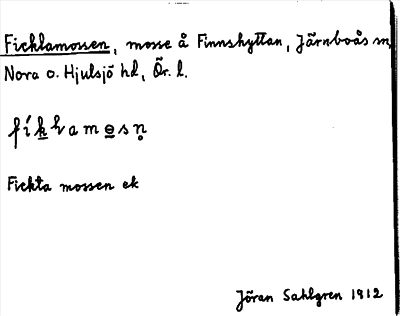 Ficklamossen, mosse å Finnshyttan, Järnboås sn,
Nora o. Hjulsjö hd, Ör. l.
fíkkamosn̥
Fickta mossen ek
Jöran Sahlgren 1912